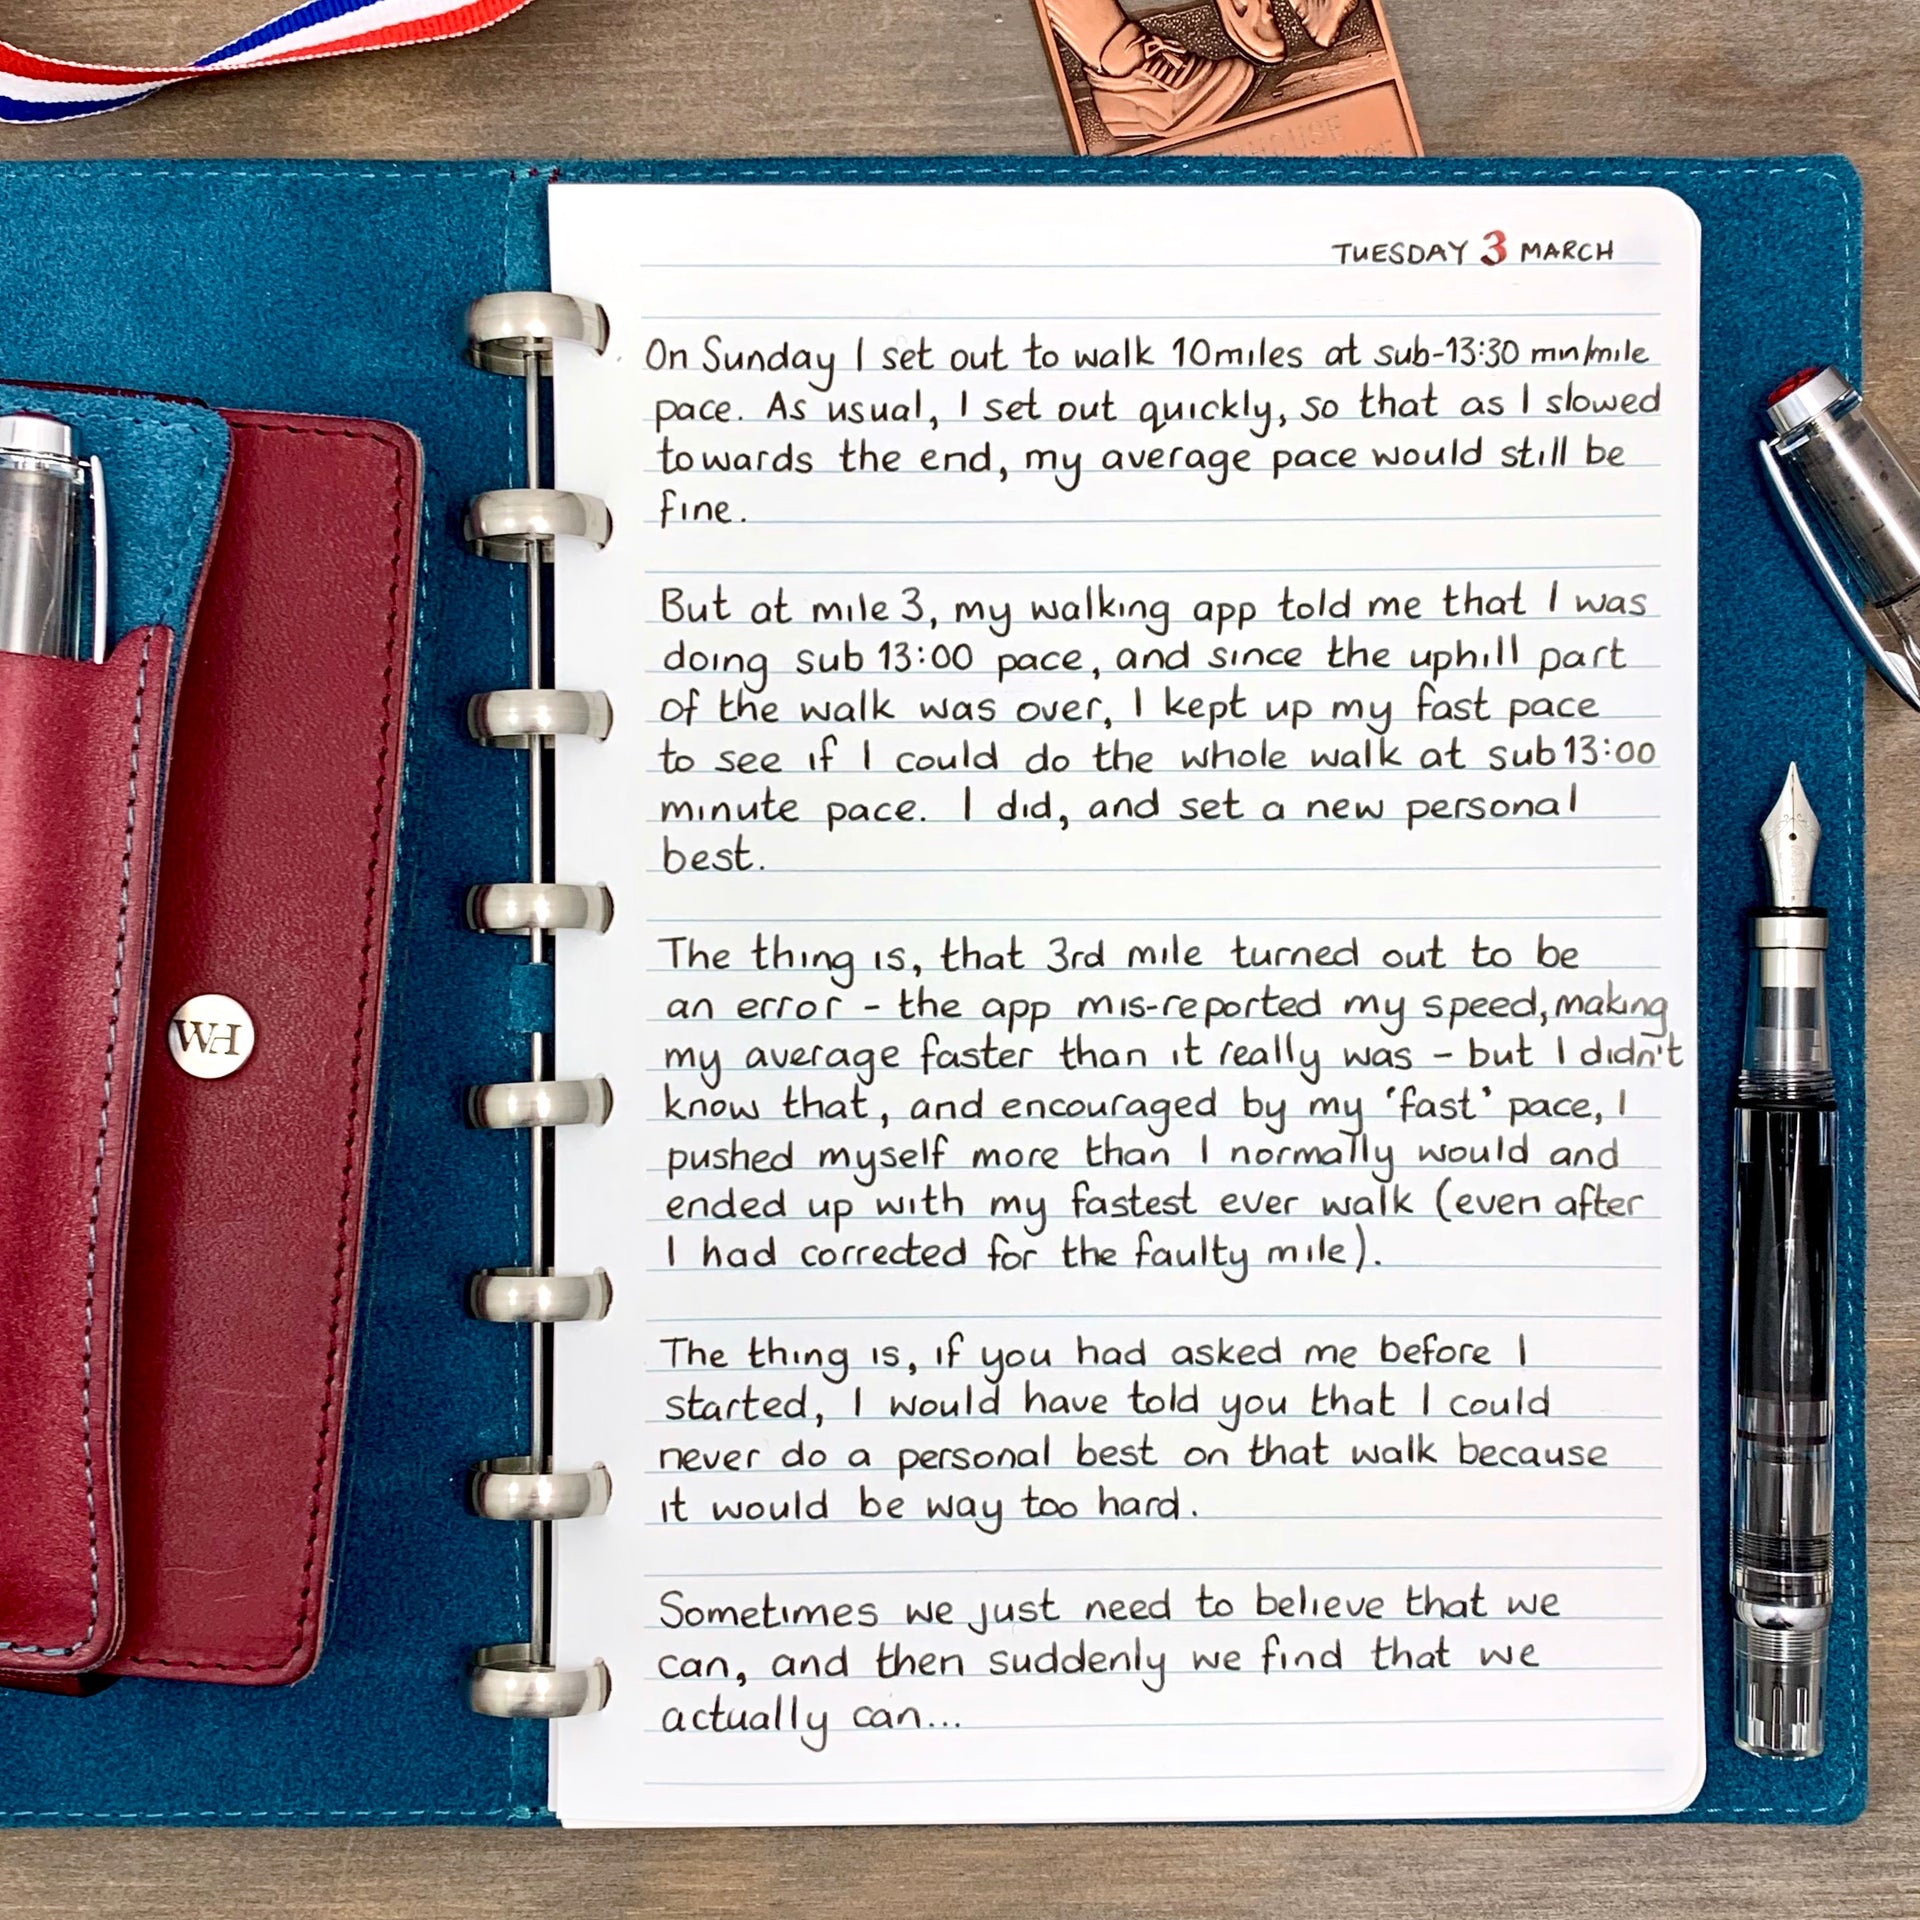 HOUSE
TUESDAY 3 MARCH
On Sunday I set out to walk 10miles at sub-13:30 min/mile
pace. As usual, I set out quickly, so that as I slowed
towards the end, my average pace would still be
fine.
But at mile 3, my walking app told me that I was
doing sub 13:00 pace, and since the uphill part
of the walk was over, I kept up my fast pace
to see if I could do the whole walk at sub 13:00
minute pace. I did, and set a new personal
best.
The thing is, that 3rd mile turned out to be
an error - the app mis-reported my speed, making
my average faster than it really was - but I didn't
know that, and encouraged by my 'fast' pace, I
pushed myself more than I normally would and
ended up with my fastest ever walk (even after
I had corrected for the faulty mile).
The thing is, if you had asked me before I
started, I would have told you that I could
never do a personal best on that walk because
it would be way too hard.
Sometimes we just need to believe that we
can, and then suddenly we find that we
actually can...
WH